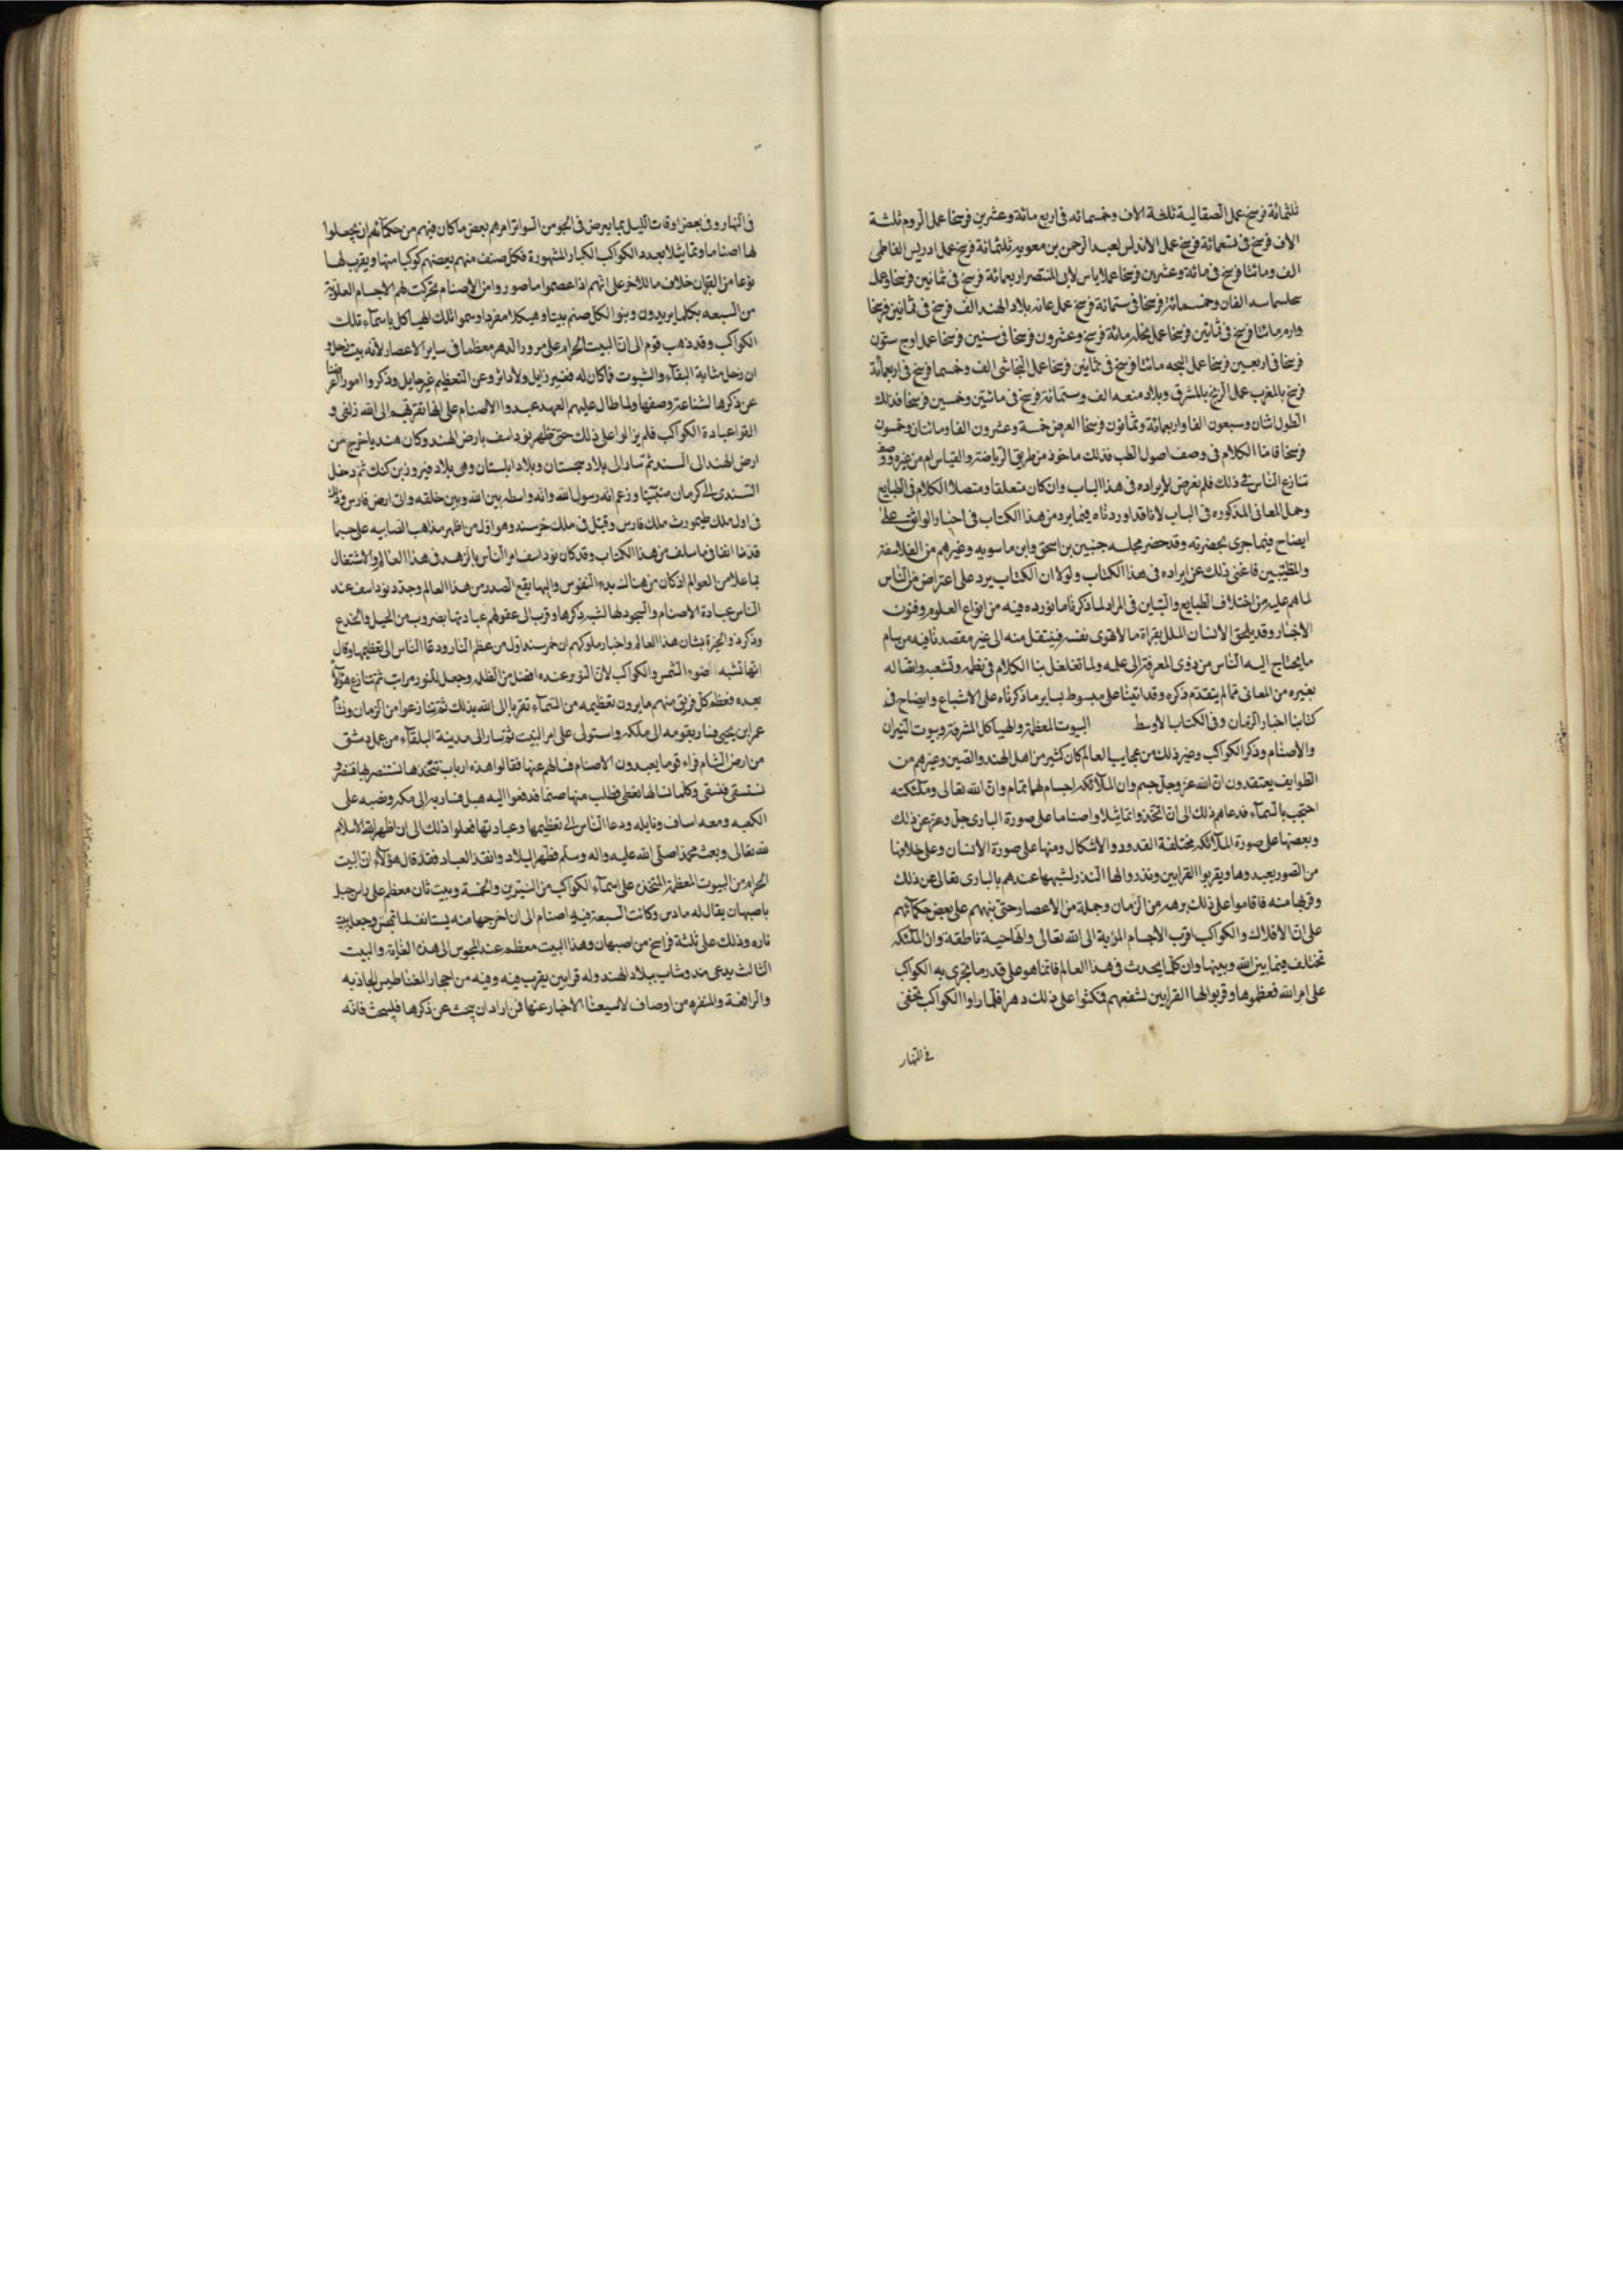 ثلثمائة فرسخ عمل الصقالبة ثلثة الاف وخمسمائه فى اربع مائة وعشرين فرسخا عمل الروم ثلثة
الاف فرسخ فى تسعمائة فرسخ عمل الاندلس لعبد الرحمن بن معويه ثلثمائة فرسخ عمل ادريس الفاطمى
الف ومائتا فرسخ فى مائة وعشرين فرسخا عمل لابى المنتصر اربعمائة فرسخ فى ثمانين فرسخا وعمل
الفان وخمسمائة فرسخا فى ستمائة فرسخ عمل عانه بلاد الهند الف فرسخ فى ثمانين فرسخا
مائتا فرسخ فى ثمانين فرسخا عمل مائة فرسخ وعشرون فرسخا فى ستين فرسخا عمل اوج ستون
فرسخا فى اربعين فرسخا عمل البجه مائتا فرسخ فى ثمانين فرسخا عمل النجاشى الف وخمسما فرسخ فى اربعمائة
فرسخ بالمغرب عمل الزنج بالمشرق وبلاد الف وستمائة فرسخ فى مائتين وخمسين فرسخا فذلك
الطول اثنان وسبعون الفا واربعمائة وثمانون فرسخا العرض خمسة وعشرون الفا ومائتان وخمسون
فرسخا فاما الكلام فى وصف اصول الطب فذلك ماخوذ من طريق الرياضة والقياس ام من غيره ووصف
تنازع الناس فى ذلك فلم نعرض لايراده فى هذا الباب وان كان متعلقا ومتصلا الكلام فى الطبايع
وجمل المعانى المذكوره فى الباب لانا قد اوردناه فيما يرد من هذا الكتاب فى اخبار الواثق على
ايضاح فيما جرى بحضرته وقد حضر مجلسه حنين بن اسحق وابن ماسويه وغيرهم من الفلاسفة
والمطببين فاغنى ذلك عن ايراده فى هذا الكتاب ولولا ان الكتاب يرد على اعتراض من الناس
لما هم عليه من اختلاف الطبايع والتباين فى المراد لما ذكرنا ما نورده فيه من انواع العلوم وفنون
الاخبار وقد يلحق الانسان الملل بقراة ما لا تهوى نفسه فينتقل منه الى غيره فيه من سام
ما يحتاج اليه الناس من ذوى المعرفة الى علمه ولما تغلغل بنا الكلام فى نظمه وتشعبه واتصاله
بغيره من المعانى مما لم يتقدم ذكره وقد اتينا على مبسوط ساير ما ذكرناه على الاشباع وايضاح فى
كتابنا اخبار الزمان وفى الكتاب الاوسط البيوت المعظمة والهياكل المشرفة وبيوت النيران
والاصنام وذكر الكواكب وغير ذلك من عجايب العالم كان كثير من اهل الهند والصين وغيرهم من
الطوايف يعتقدون ان الله عز وجل جسم وان الملائكه اجسام لها تمام وان الله تعالى وملئكته
احتجب بالسماء فدعاهم ذلك الى ان اتخذوا تماثيلا واصناما على صورة البارى جل وعز عن ذلك
وبعضها على صورة الملائكه مختلفة القدود والاشكال ومنها على صورة الانسان وعلى خلافها
من الصور يعبدوها ويقربوا القرابين ونذروا لها النذر لشبهها عندهم بالبارى تعالى عن ذلك
وقربها منه فاقاموا على ذلك برهه من الزمان وجملة من الاعصار حتى نبههم على بعض حكمائهم
على ان الافلاك والكواكب اقرب الاجسام المرئية الى الله تعالى وانها حية ناطقة وان الملئكه
تختلف فيما بين الله وبينها وان كلما يحدث فى هذا العالم فانما هو على قدر ما تجرى به الكواكب
على امر الله فعظموها وقربوا لها القرابين لتنفعهم فمكثوا على ذلك دهرا فلما راوا الكواكب تخفى
فى النهار
فى النهار وفى بعض اوقات الليل بما يعرض فى الجو من السواتر امرهم بعض ما كان فيهم من حكمائهم ان يجعلوا
لها اصناما وتماثيلا بعدد الكواكب الكبار المشهورة فكل صنف منهم يعظم كوكبا منها ويقرب لها
نوعا من القربان خلاف ما للاخر على انهم اذا عظموا ما صوروا من الاصنام تحركت لهم الاجسام العلوية
من السبعه بكلما يريدون وبنوا لكل صنم بيتا وهيكلا مفردا وسموا تلك الهياكل باسماء تلك
الكواكب وقد ذهب قوم الى ان البيت الحرام على مرور الدهر معظما فى ساير الاعصار لانه بيت زحل و
ان زحل البقاء والثبوت فما كان له فغير زايل ولا داثر وعن التعظيم غير حايل وذكروا امورا اعرضنا
عن ذكرها لشناعة وصفها ولما طال عليهم العهد عبدوا الاصنام على انها تقربهم الى الله زلفى و
الفوا عبادة الكواكب فلم يزالوا على ذلك حتى ظهر بوداسف بارض الهند وكان هنديا خرج من
ارض الهند الى السند ثم سار الى بلاد سجستان وبلاد ابلستان وهى بلاد فيروز بن كنك ثم دخل
السند الى كرمان متنبئا وزعم انه رسول الله وانه واسطه بين الله وبين خلقه واتى ارض فارس وذلك
فى اول ملك طهمورث ملك فارس وقيل فى ملك وهو اول من اظهر مذاهب الصابيه على حسبما
قدمنا انفا فيما سلف من هذا الكتاب وقد كان بوداسف امر الناس بالزهد فى هذا العالم والاشتغال
بما علا من العوالم اذ كان من هناك بدء النفوس واليها يقع الصدر من هذا العالم وجدد بوداسف عند
الناس عبادة الاصنام والسجود لها لشبه ذكرها وقرب الى عقولهم عبادتها بضروب من الحيل والخدع
وذكر ذو الخبرة بشان هذا العالم واخبار ملوكهم ان اول من عظم النار ودعا الناس الى تعظيمها وقال
انها تشبه ضوء الشمس والكواكب لان النور عنده افضل من الظلمه وجعل للنور مراتب ثم تنازع هؤلاء
بعده فعظم كل فريق منهم ما يرون تعظيمه من السماء تقربا الى الله بذلك ثم تنازعوا من الزمان ونشأ
عمر ابن يحيى فسار بقومه الى مكه واستولى على امر البيت ثم سار الى مدينة البلقاء من عمل دمشق
من ارض الشام فراء قوما يعبدون الاصنام فسالهم عنها فقالوا هذه ارباب نتخذها نستنصر بها فننصر و
نستسقى فنسقى وكلما نسالها نعطى فطلب منها صنما فدفعوا اليه هبل فسار به الى مكه ونصبه على
الكعبه ومعه اساف ونايله ودعا الناس الى تعظيمها وعبادتها فعلوا ذلك الى ان اظهر الله الاسلام
لله تعالى وبعث محمدا صلى الله عليه واله وسلم فطهر البلاد وانقذ العباد فقد قال هؤلاء ان البيت
الحرام من البيوت المعظمة المتخذة على اسماء الكواكب من النيرين والخمسة وبيت ثان معظم على راس جبل
باصبهان يقال له مارس وكانت السبعة فيه اصنام الى ان اخرجها منه يستاسف لما تمجس وجعله بيت
ناره وذلك على ثلثة فراسخ من اصبهان وهذا البيت معظم عند المجوس الى هذه الغاية والبيت
الثالث يدعى مندوشاب ببلاد الهند وله قرابين يقرب فيه وفيه من احجار المغناطيس الجاذبه
والرافعة والمنفره من اوصاف لا يسعنا الاخبار عنها فمن اراد ان يبحث عن ذكرها فليبحث فانه